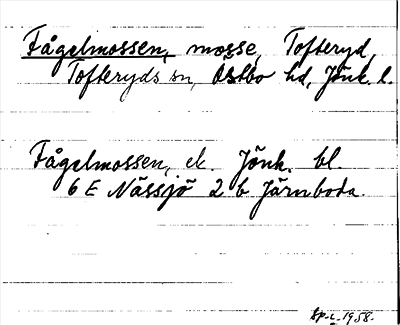 Fågelmossen, mosse, Tofteryd,
Tofteryds sn, Östbo hd, Jönk. l.
Fågelmossen, ek. Jönk. bl.
6 E Nässjö 2 b Järnboda.
1958.